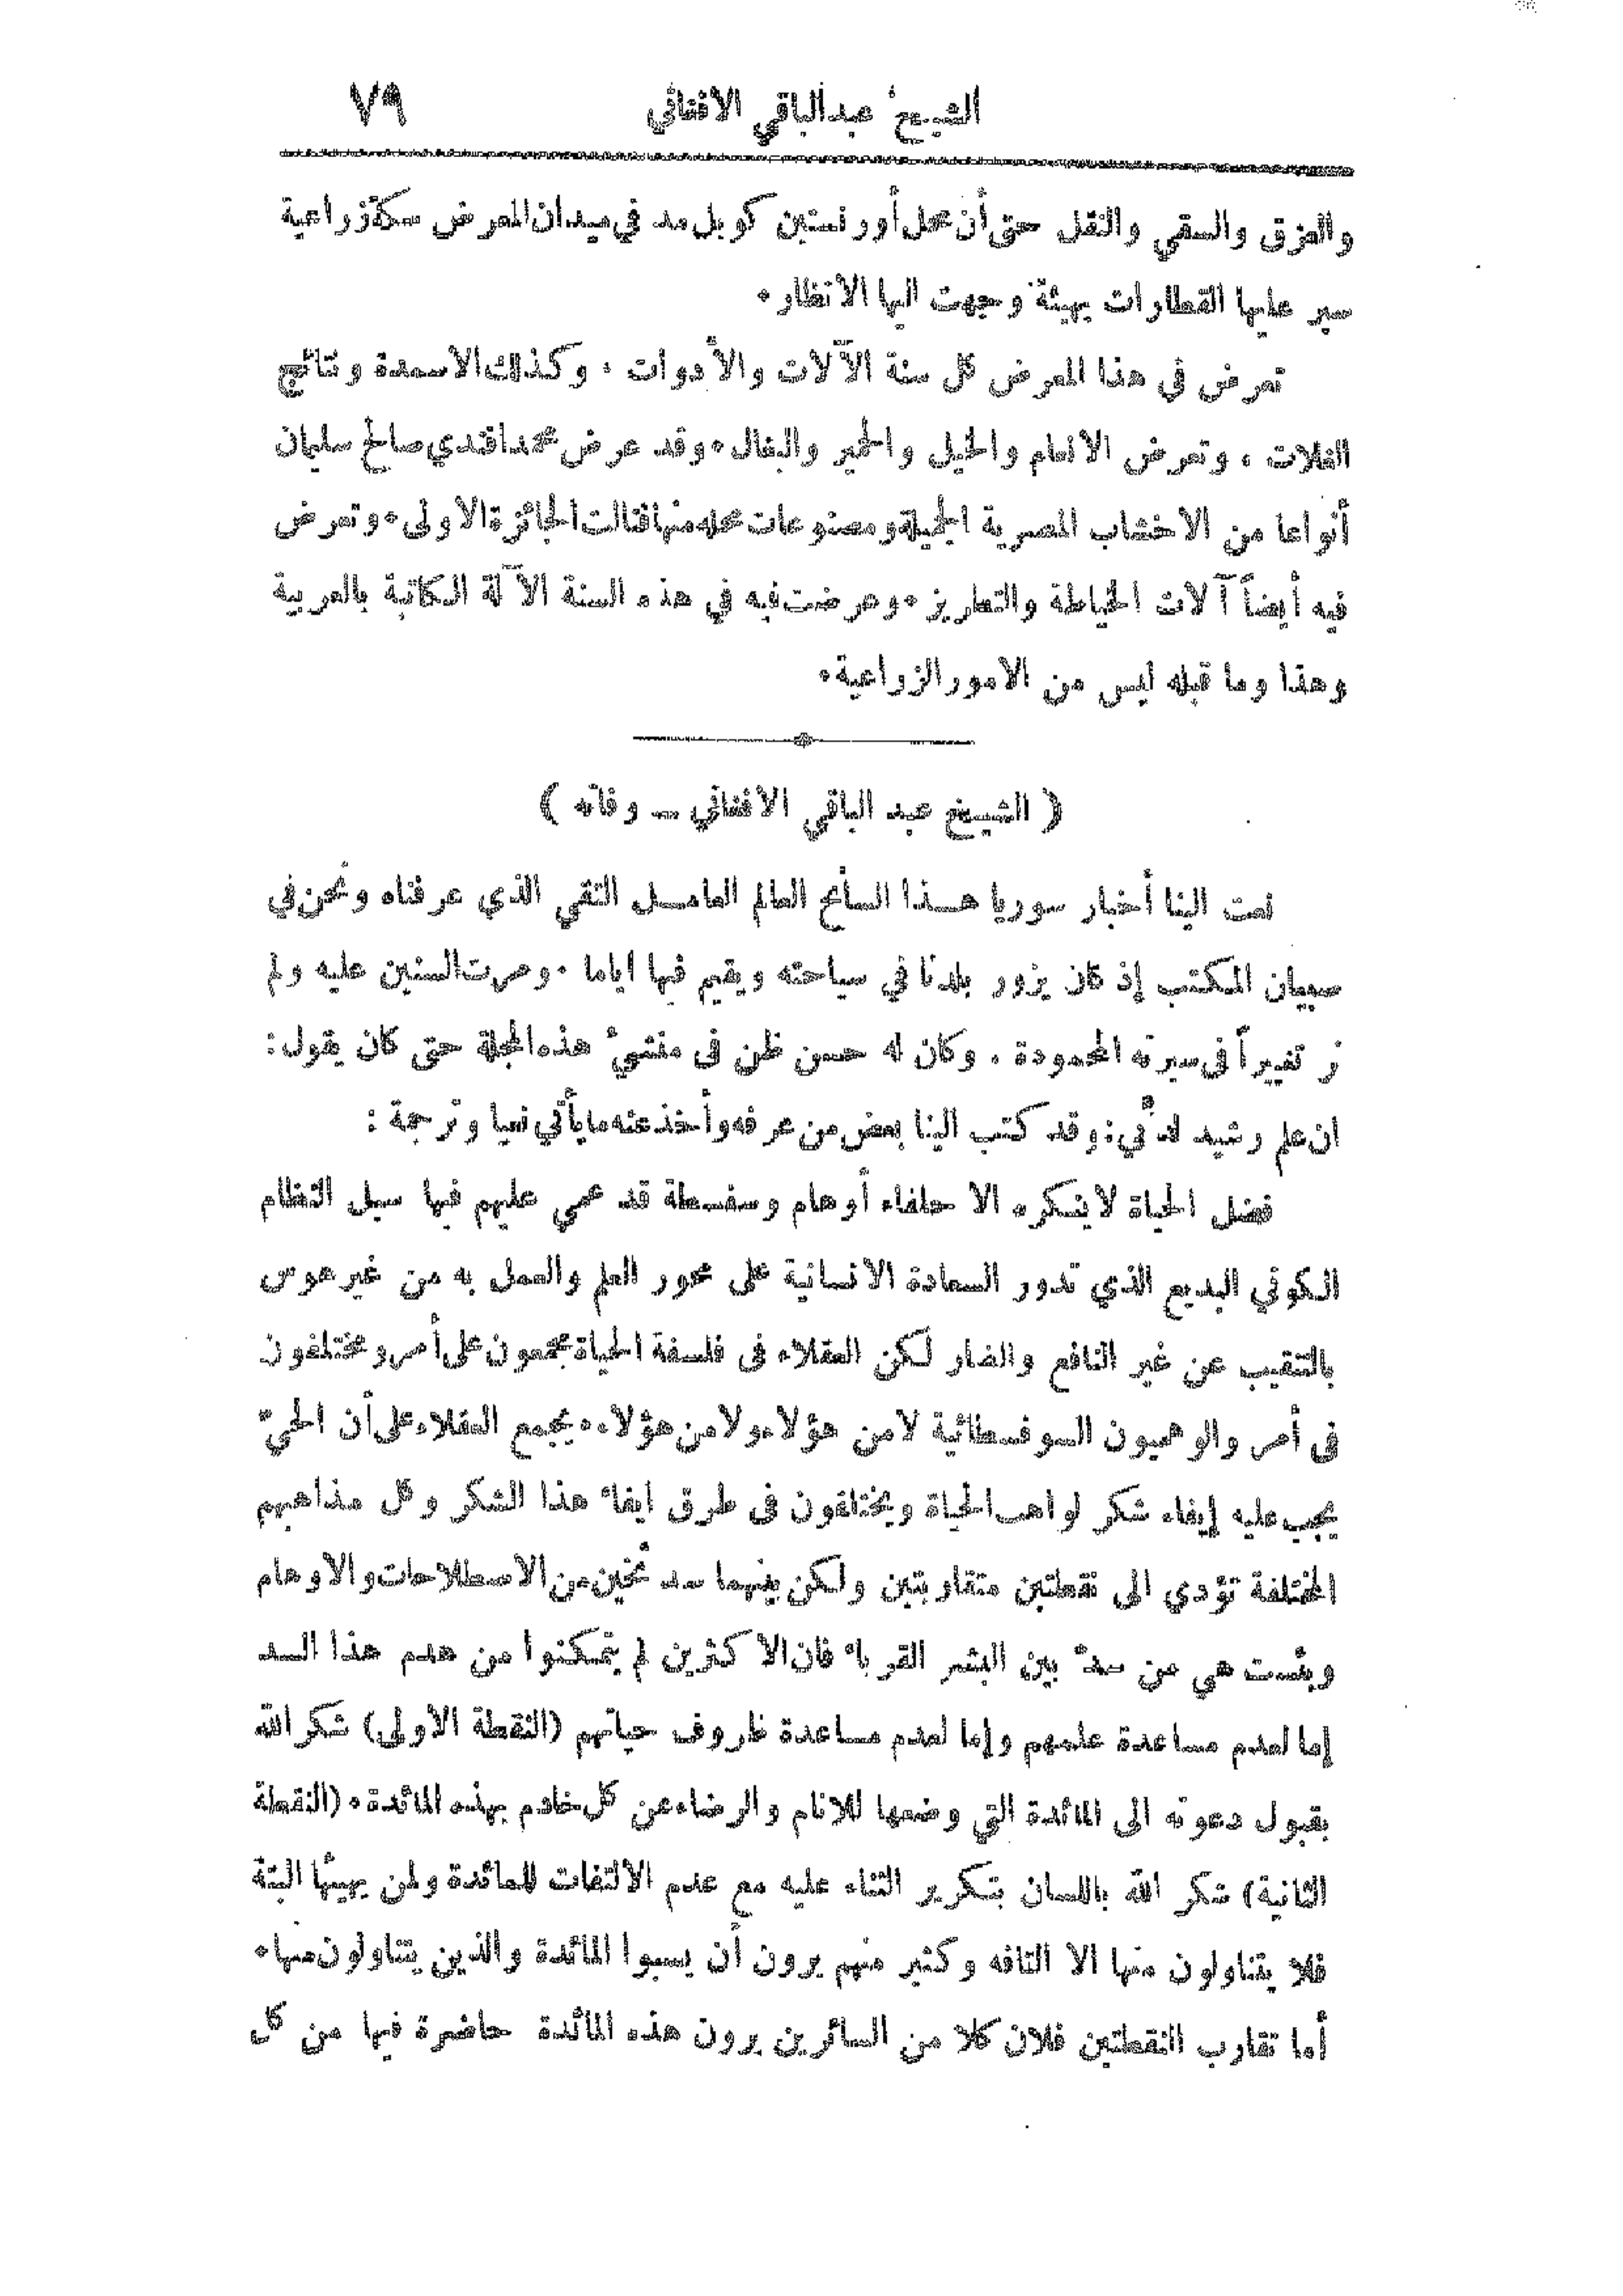 الشيخ عبدالباقي الافغاني ٧٩
والعزق والسقي والنقل حتى أن محل أورنستين كوبل مد في ميدان المعرض سكة زراعية
سير عليها القطارات بهيئة وجهت اليها الانظار ٠
تعرض في هذا المعرض كل سنة الآلات والأدوات ، وكذلك الاسمدة ونتائج
الغلات ، وتعرض الانعام والخيل والحمير والبغال ٠ وقد عرض محمد افندي صالح سليمان
أنواعا من الاخشاب المصرية الجميلة ومصنوعات محله منها فنالت الجائزة الاولى ٠ وتعرض
فيه أيضاً آلات الخياطة والتطريز ٠ وعرضت فيه في هذه السنة الآلة الكاتبة بالعربية
وهذا وما قبله ليس من الامور الزراعية ٠
( الشيخ عبد الباقي الافغاني ــ وفاته )
نعت الينا أخبار سوريا هـذا السائح العالم العامـل التقي الذي عرفناه ونحن في
صبيان المكتب إذ كان يزور بلدنا في سياحته ويقيم فيها اياما ٠ ومرت السنين عليه ولم
نر تغييراً في سيرته المحمودة ، وكان له حسن ظن في منشئ هذه المجلة حتى كان يقول :
ان علم رشيد لدنّي : وقد كتب الينا بعض من عرفه وأخذ عنه ما يأتي نعيا وترجمة :
فضل الحياة لا ينكره الا حلفاء أوهام وسفسطة قد عمي عليهم فيها سبل النظام
الكوني البديع الذي تدور السعادة الانسانية على محور العلم والعمل به من غير هوس
بالتنقيب عن غير النافع والضار لكن العقلاء في فلسفة الحياة مجمعون على أمر ومختلفون
في أمر والوهميون السوفسطائية لا من هؤلاء ولا من هؤلاء ٠ يجمع العقلاء على أن الحيّ
يجب عليه إيفاء شكر لواهب الحياة ويختلفون في طرق ايفاء هذا الشكر وكل مذاهبهم
المختلفة تؤدي الى نقطتين متقاربتين ولكن بينهما سد ثخين من الاصطلاحات والاوهام
وبئست هي من سدّ بين البشر القرباء فان الاكثرين لم يتمكنوا من هدم هذا السد
إما لعدم مساعدة علمهم وإما لعدم مساعدة ظروف حياتهم (النقطة الاولى) شكر الله
بقبول دعوته الى المائدة التي وضعها للانام والرضاء عن كل خادم بهذه المائدة ٠ (النقطة
الثانية) شكر الله باللسان بتكرير الثناء عليه مع عدم الالتفات للمائدة ولمن يهيئها البتة
فلا يتناولون منها الا التافه وكثير منهم يرون أن يسبوا المائدة والذين يتناولون منها ٠
أما تقارب النقطتين فلان كلا من السائرين يرون هذه المائدة حاضرة فيها من كل